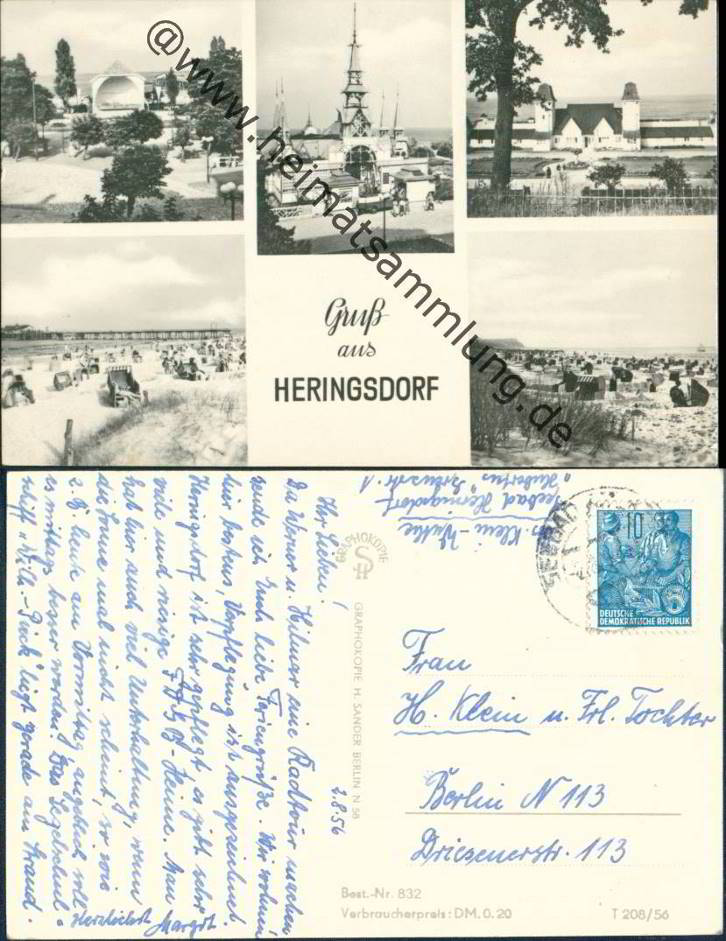 @www.heimatsammlung.de
Gruß
aus
HERINGSDORF
Klein-
Seebad Heringsdorf
"Hubertus"
GRAPHOKOPIE
GRAPHOKOPIE H. SANDER BERLIN N 58
10
DEUTSCHE
DEMOKRATISCHE REPUBLIK
2.8.56
Ihr Lieben!
Da Werner u. Hilmar eine Radtour machen
sende ich Euch liebe Feriengrüße. Wir wohnen
hier bestens, Verpflegung ist ausgezeichnet
Heringsdorf ist sehr gepflegt es gibt sehr
viele und riesige FDGB-Heime. Man
hat hier auch viel Unterhaltung, wenn
die Sonne mal nicht scheint, so wie
z. B. heute am Vormittag, angeblich soll
es mittags besser werden. Das Segelschul-
schiff "Wilh. Pieck" liegt grade am Strand.
Herzlichst
Margot.
Frau
H. Klein u. Frl. Tochter
Berlin N 113
Driesenerstr. 113
Best.-Nr. 832
Verbraucherpreis: DM. 0.20
T 208/56